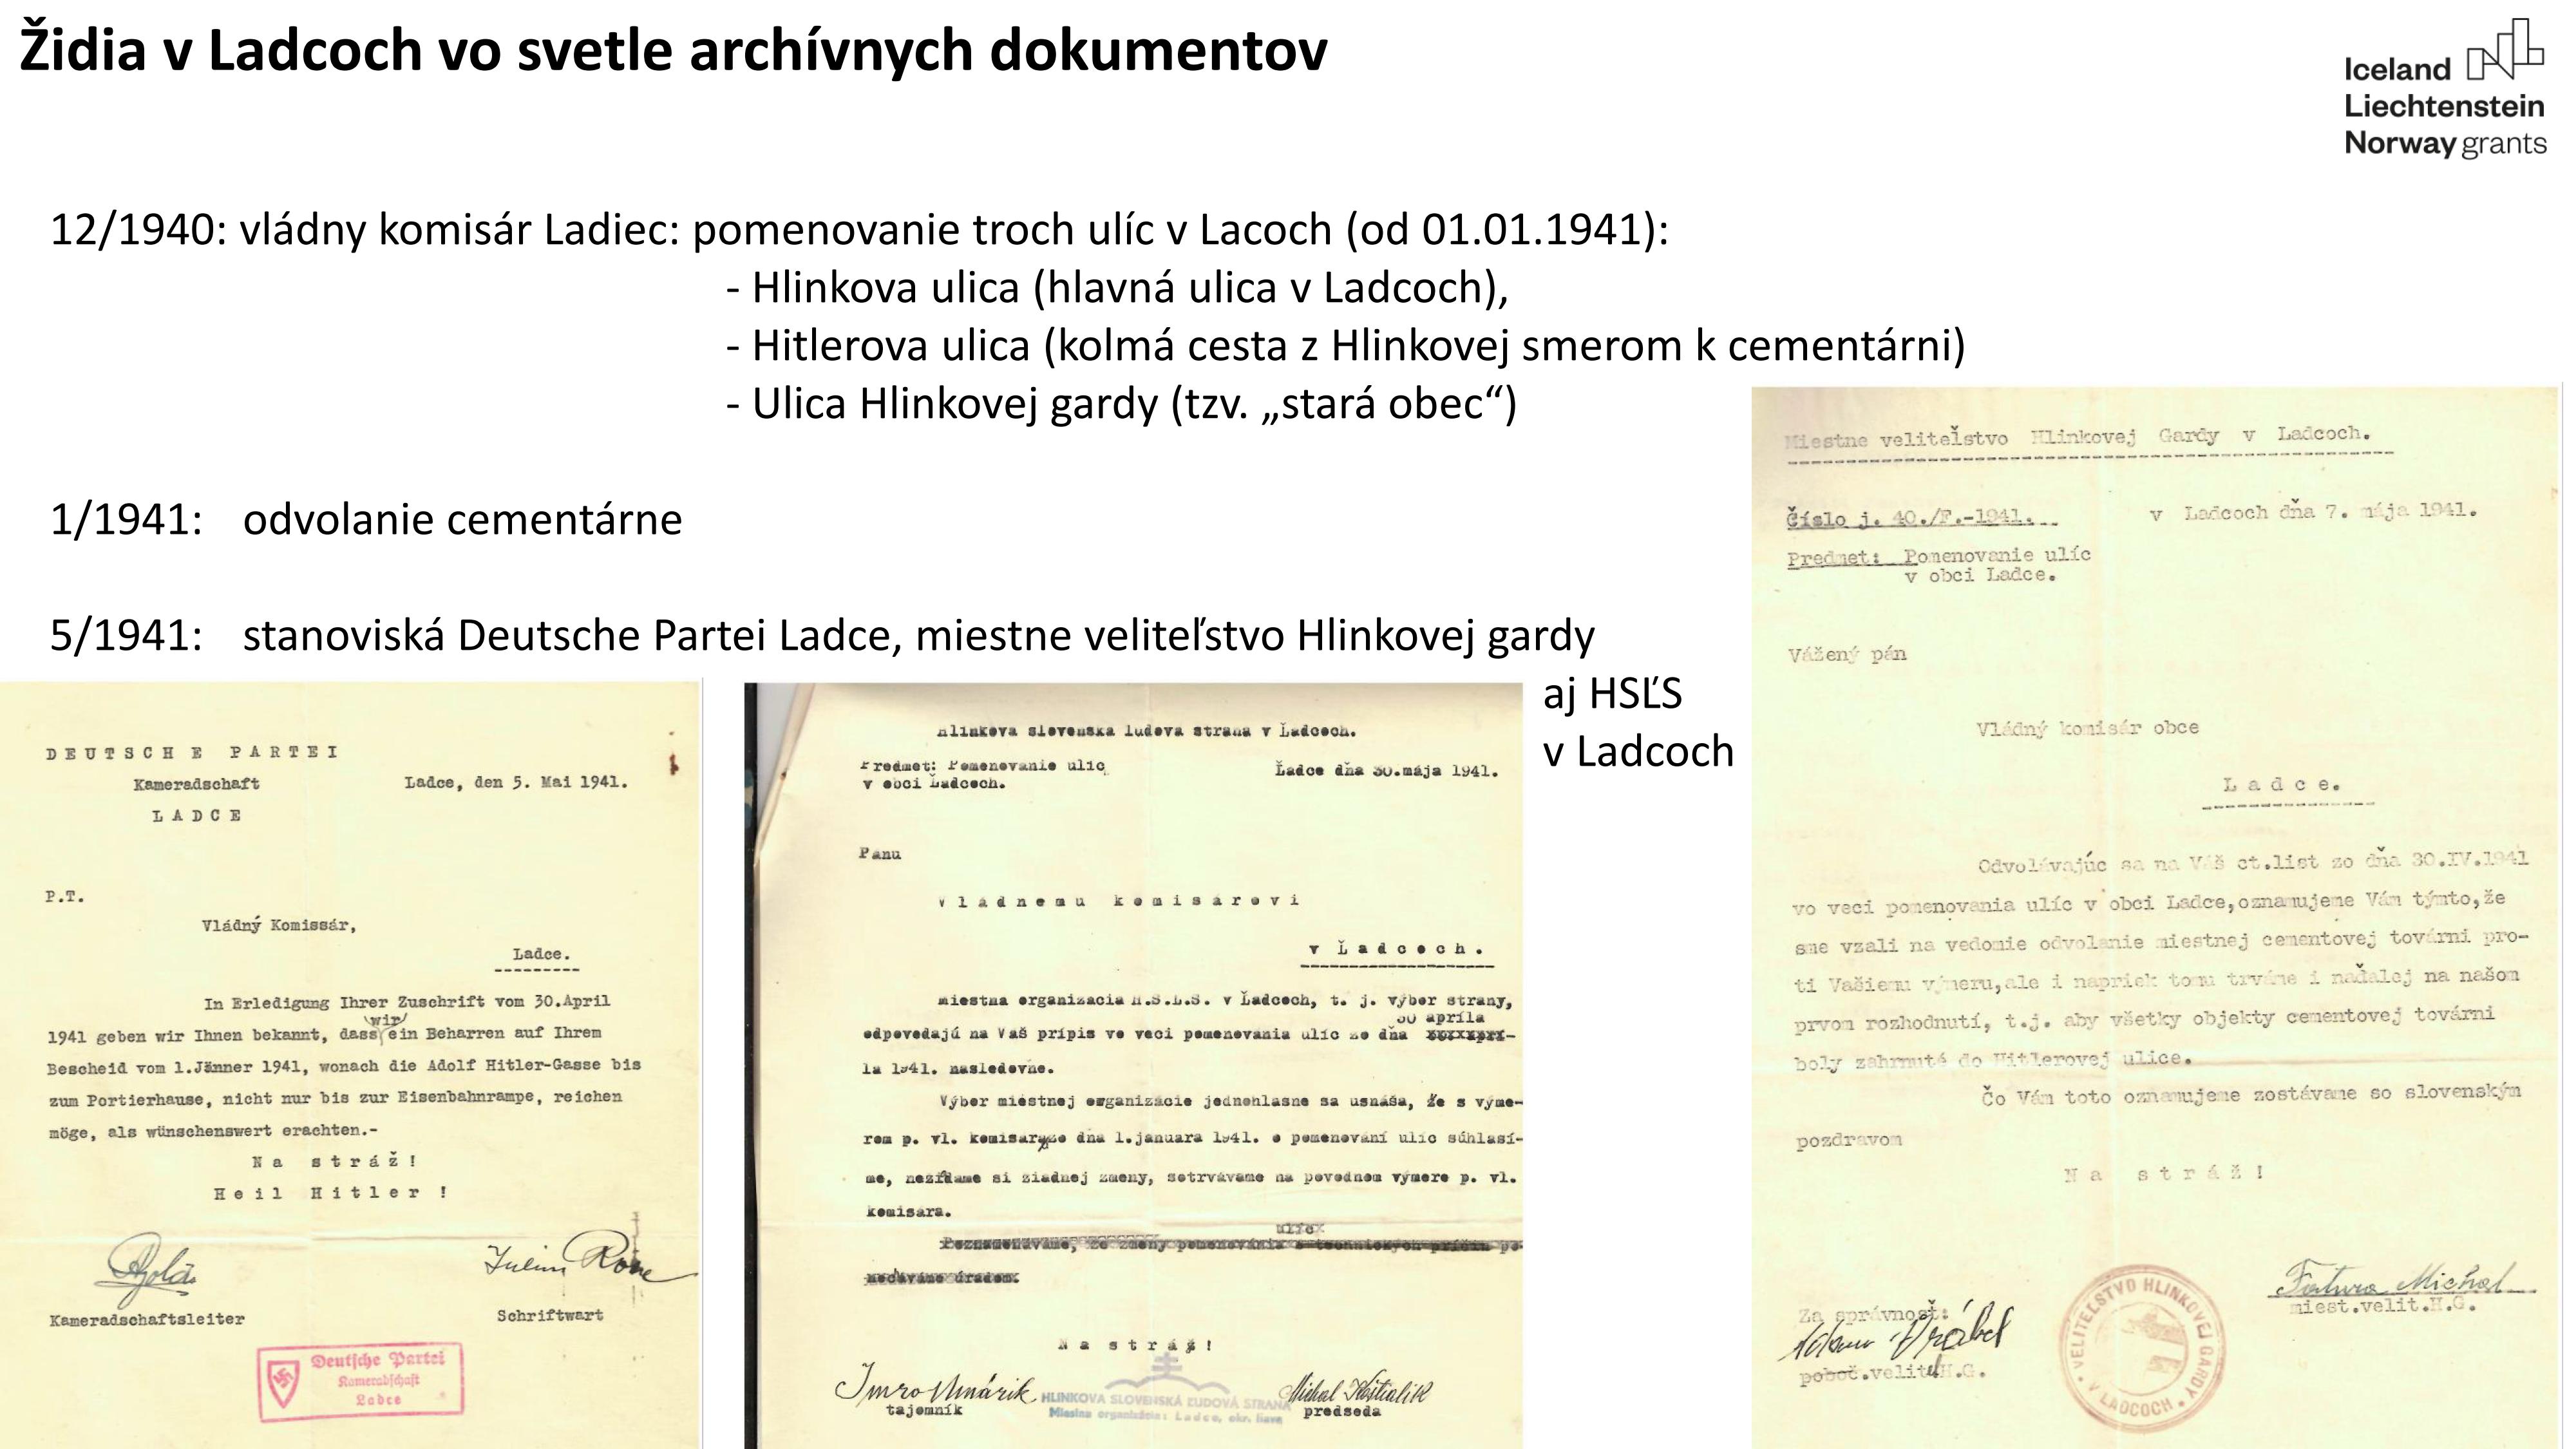 Židia v Ladcoch vo svetle archívnych dokumentov
Iceland
Liechtenstein
Norway grants
12/1940: vládny komisár Ladiec: pomenovanie troch ulíc v Lacoch (od 01.01.1941):
- Hlinkova ulica (hlavná ulica v Ladcoch),
- Hitlerova ulica (kolmá cesta z Hlinkovej smerom k cementárni)
- Ulica Hlinkovej gardy (tzv. „stará obec“)
1/1941: odvolanie cementárne
5/1941: stanoviská Deutsche Partei Ladce, miestne veliteľstvo Hlinkovej gardy
aj HSĽS
v Ladcoch
DEUTSCHE PARTEI
Kameradschaft
LADCE
Ladce, den 5. Mai 1941.
P.T.
Vládný Komissár,
Ladce.
In Erledigung Ihrer Zuschrift vom 30.April
wir
1941 geben wir Ihnen bekannt, dass ein Beharren auf Ihrem
Bescheid vom 1.Jänner 1941, wonach die Adolf Hitler-Gasse bis
zum Portierhause, nicht nur bis zur Eisenbahnrampe, reichen
möge, als wünschenswert erachten.-
Na stráž!
Heil Hitler !
Kameradschaftsleiter
Julius
Schriftwart
Deutsche Partei
Kameradschaft
Ladce
Hlinkova slovenska ludova strana v Ľadcoch.
Predmet: Pomenovanie ulic
v obci Ľadcoch.
Ľadce dňa 30.mája 1941.
Panu
Vládnemu komisárovi
v Ľadcoch.
miestna organizacia H.S.L.S. v Ľadcoch, t. j. výber strany,
30 apríla
odpovedajú na Váš prípis vo veci pomenovania ulíc zo dňa
la 1941. nasledovne.
Výber miestnej organizácie jednohlasne sa usnáša, že s výme-
rom p. vl. komisara zo dna 1.januara 1941. o pomenování ulic súhlasí-
me, nežiadame si ziadnej zmeny, sotrvávame na povodnom výmere p. vl.
komisara.
Na stráž!
Imro
tajomník
HLINKOVA SLOVENSKÁ ĽUDOVÁ STRANA
Miestna organizácia: Ladce, okr. Ilava
Michal
predseda
Miestne veliteľstvo Hlinkovej Gardy v Ladcoch.
Číslo j. 40./F.-1941.
v Ladcoch dňa 7. mája 1941.
Predmet: Pomenovanie ulíc
v obci Ladce.
Vážený pán
Vládný komisár obce
Ladce.
Odvolávajúc sa na Váš ct.list zo dňa 30.IV.1941
vo veci pomenovania ulíc v obci Ladce,oznamujeme Vám týmto,že
sme vzali na vedomie odvolanie miestnej cementovej továrni pro-
ti Vašiemu výmeru,ale i napriek tomu trváme i naďalej na našom
prvom rozhodnutí, t.j. aby všetky objekty cementovej továrni
boly zahrnuté do Hitlerovej ulice.
Čo Vám toto oznamujeme zostávame so slovenským
pozdravom
Na stráž!
Za správnosť:
Adam Vrábel
poboč.velit.H.G.
VELITEĽSTVO HLINKOVEJ GARDY
V LADCOCH
Michal
miest.velit.H.G.